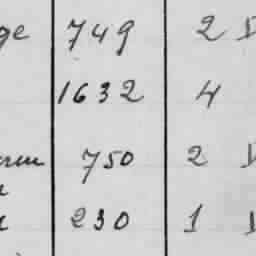 ge 749 2 D
1632 4
750 2
230 1